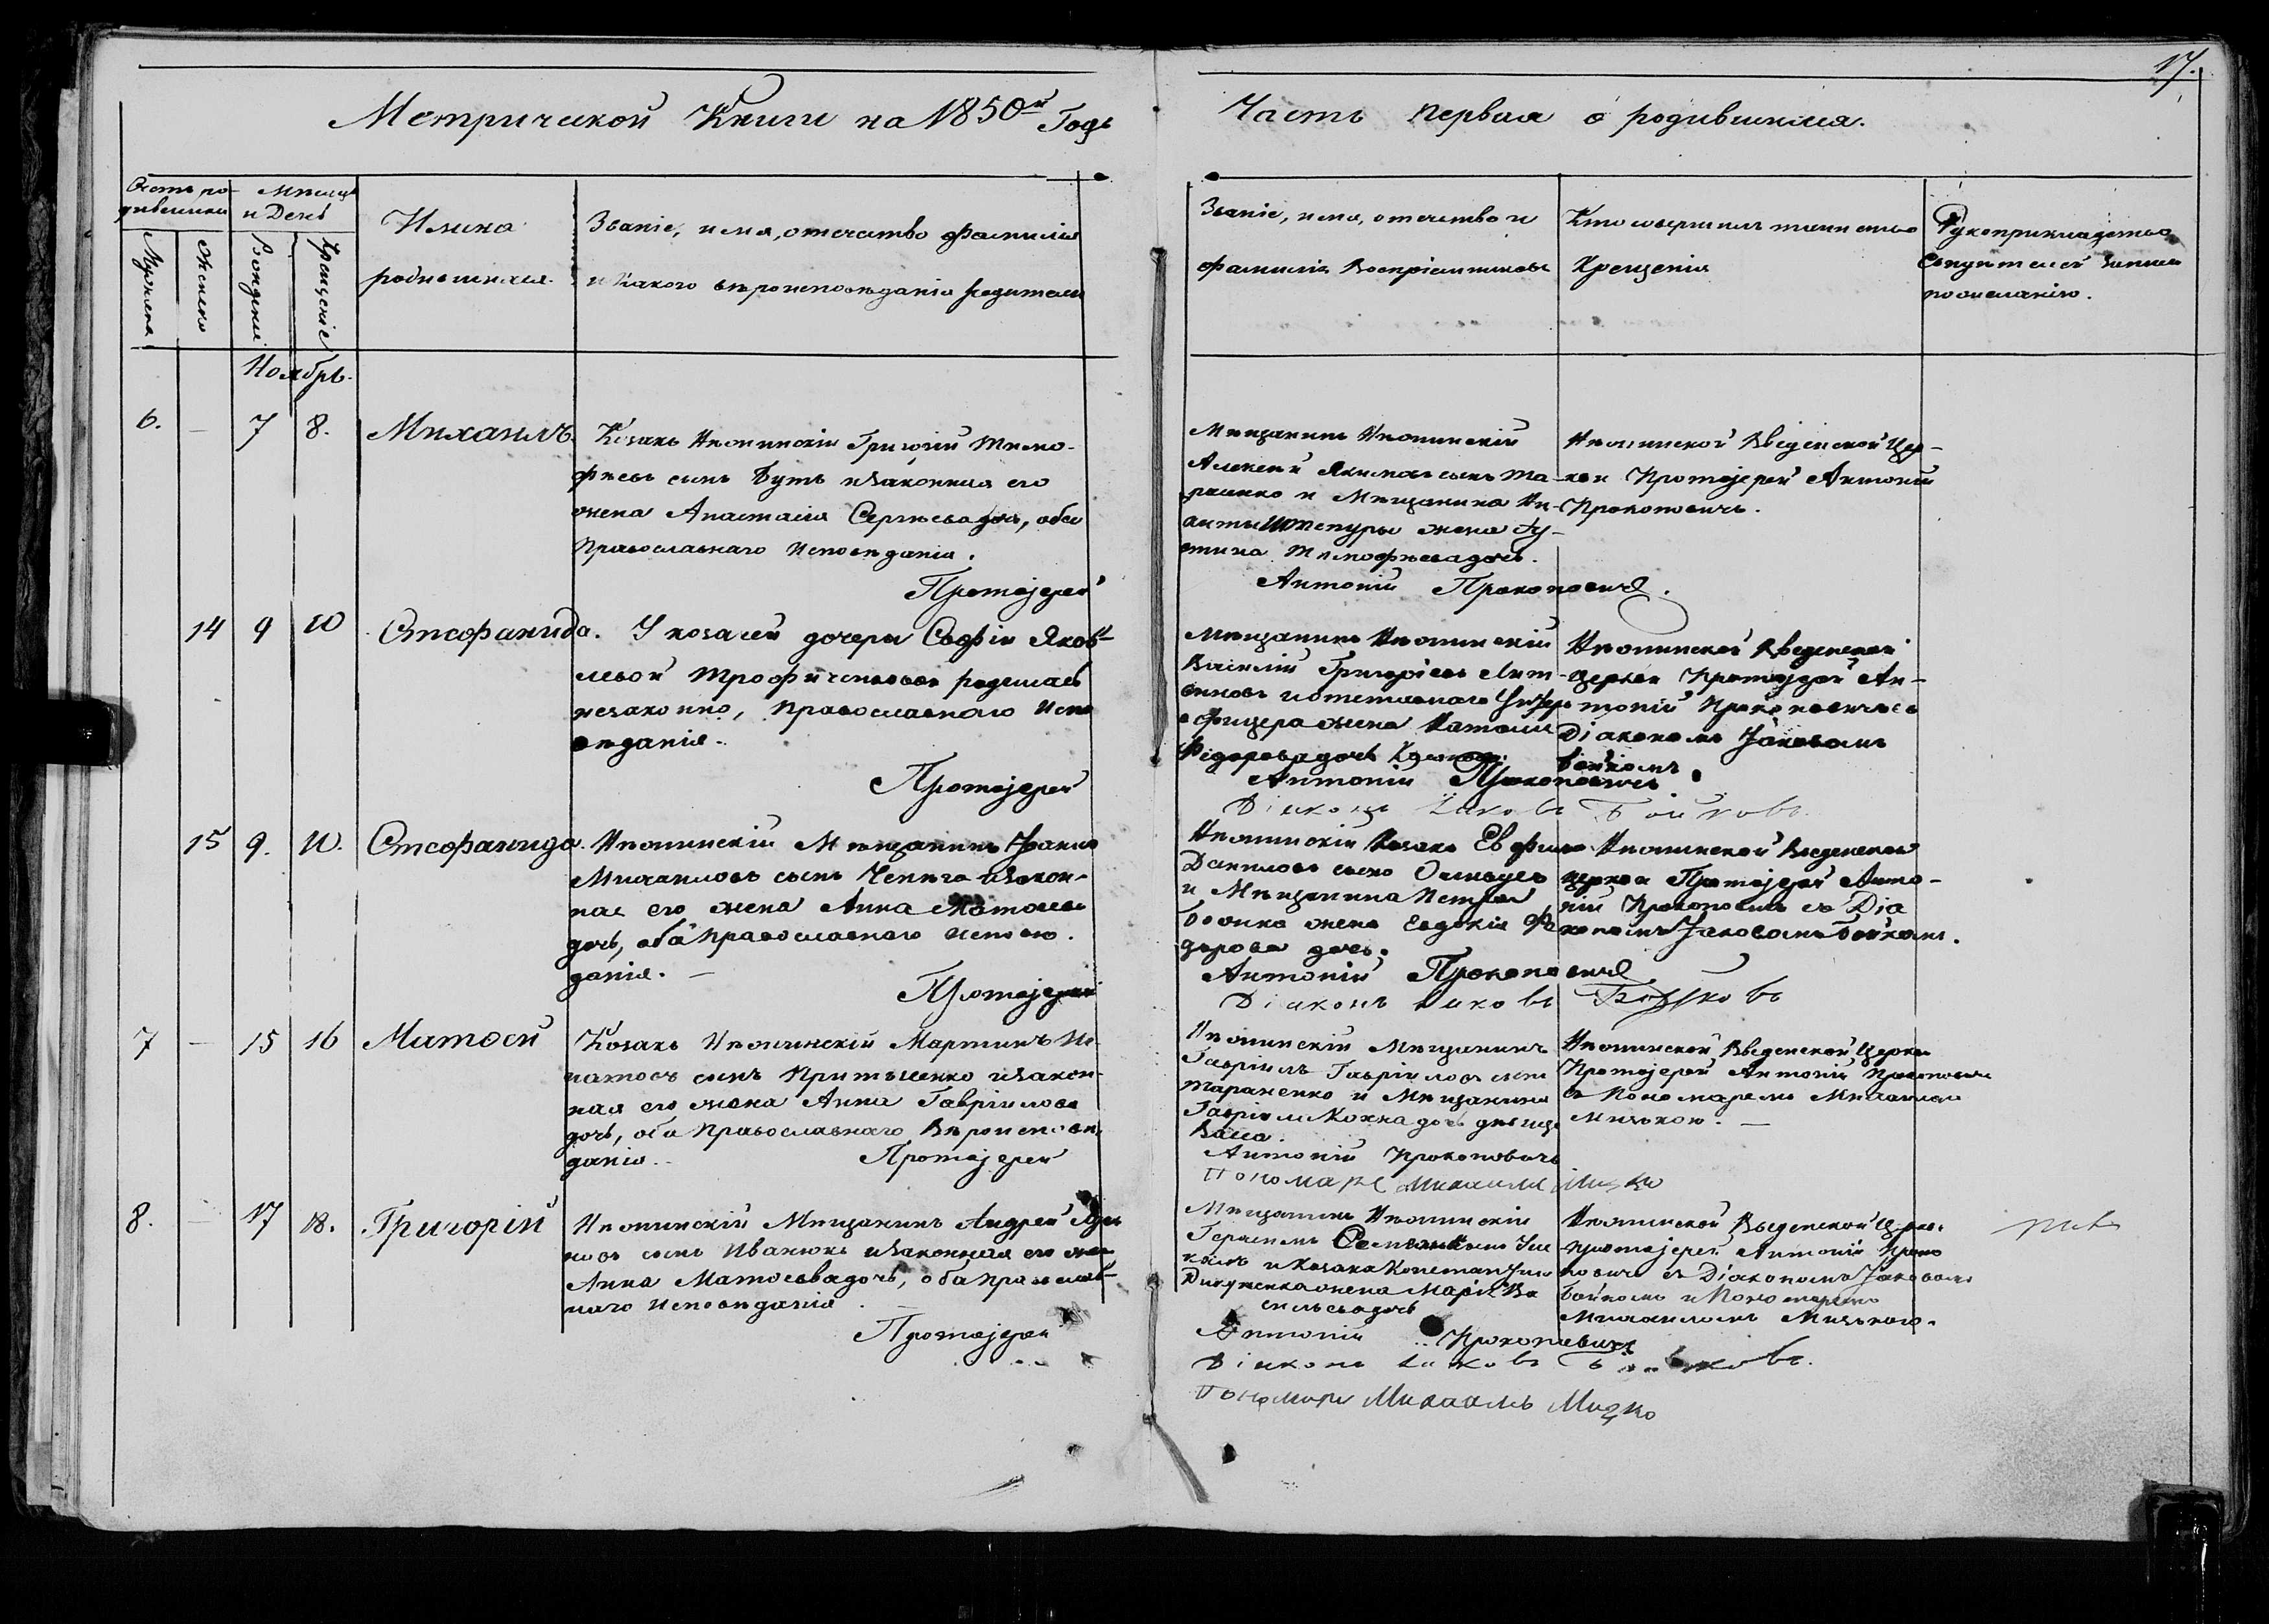 17.
Метрической Книги на 1850й Годъ
Часть первая о родившихся.
Мѣсяцъ
и День
Имена
родившихся.
Званіе, имя, отечество фамилія
и какого вѣроисповѣданія родители
Званіе, имя, отечество и
фамилія Воспріемниковъ
Кто совершилъ таинство
Крещенія
Рукоприкладство
свидѣтелей записи
по желанію.
Мужеска
Женска
Рожденія
Крещеніе
Ноябрь.
6. — 7 8. Михаилъ.
Козакъ Нѣжинскій Григорій Тимо-
фѣевъ сынъ Бутъ и законная его
жена Анастасія Сергѣева дочь, оба
Православнаго Исповѣданія.
Протоіерей
Мѣщанинъ Нѣжинскій
Алексѣй Якимовъ сынъ Та-
ранко и Мѣщанина
жена
Тимофѣева дочь.
Антоній Прокоповичъ.
Нѣжинской Введенской Цер-
кви Протоіерей Антоній
Прокоповичъ.
14 9 10 Стефанида.
У козачей дочери Софіи Яков-
левой родилась
незаконно, Православнаго Испо
вѣданія.
Протоіерей
Мѣщанинъ Нѣжинскій
Василій Григорієвъ Лит-
виновъ и отставного Унтеръ
офицера жена
Фёдорова дочь
Антоній Прокоповичъ.
Діаконъ Іаковъ Бойковъ.
Нѣжинской Введенской
церкви Протоіерей Ан-
тоній Прокоповичъ съ
Діакономъ Іаковомъ
Бойкомъ
15 9. 10. Стефанида.
Нѣжинскій Мѣщанинъ
Михаиловъ сынъ Чепига и закон-
ная его жена Анна Матвѣева
дочь, оба Православнаго исповѣ-
данія. —
Протоіерей
Нѣжинскій Козакъ Евфимъ
Даниловъ сынъ
и Мѣщанина Петра
Бойка жена Евдокія Фе
дорова дочь.
Антоній Прокоповичъ
Діаконъ Іаковъ Бойковъ
Нѣжинской Введенской
церкви Протоіерей Анто-
ній Прокоповичъ съ Діа
кономъ Іаковомъ Бойкомъ.
7 — 15 16 Матвей
Козакъ Нѣжинскій Мартинъ Иг-
натовъ сынъ и закон-
ная его жена Анна Гавріилова
дочь, оба Православнаго Вѣроисповѣ-
данія.
Протоіерей
Нѣжинскій Мѣщанинъ
Гавріилъ Гавріиловъ сынъ
Тараненко и Мѣщанина
Гавріила дочь дѣвица
Антоній Прокоповичъ
Пономарь Михаилъ Мизко
Нѣжинской Введенской Церкви
Протоіерей Антоній Прокоповичъ
съ Пономаремъ Михаиломъ
Мизькою. —
8. — 17 18. Григорій
Нѣжинскій Мѣщанинъ Андрей
сынъ Иванюкъ и законная его жена
Анна Матвѣева дочь, оба православ-
наго исповѣданія. —
Протоіерей
Мѣщанинъ Нѣжинскій
Герасимъ
и Козака
жена Марія Ва
сильева дочь
Антоній Прокоповичъ
Діаконъ Іаковъ Бойковъ.
Пономарь Михаилъ Мизко
Нѣжинской Введенской Церкви
протоіерей Антоній Проко
повичъ съ Діакономъ Іаковомъ
Бойкомъ и Пономаремъ
Михаиломъ Мизькою.